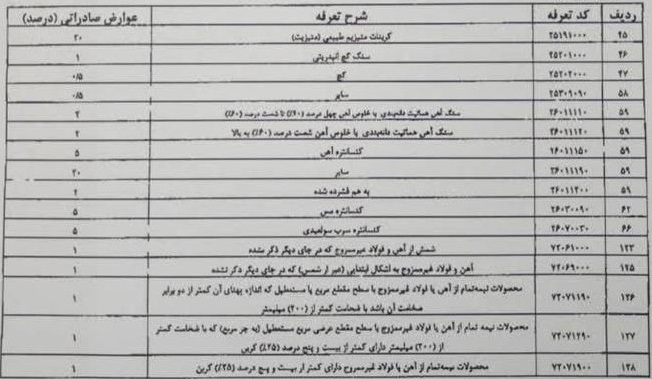 ردیف کد تعرفه شرح تعرفه عوارض صادراتی (درصد)
۴۵ ۲۵۱۹۱۰۰۰ کربنات منیزیم طبیعی (منیزیت) ۲۰
۴۶ ۲۵۲۰۱۰۰۰ سنگ گچ انیدریتی ۱
۴۷ ۲۵۲۰۲۰۰۰ گچ ۰/۵
۵۸ ۲۵۳۰۹۰۹۰ سایر ۰/۵
۵۹ ۲۶۰۱۱۱۱۰ سنگ آهن هماتیت دانه‌بندی با خلوص آهن چهل درصد (۴۰٪) تا شصت درصد (۶۰٪) ۲
۵۹ ۲۶۰۱۱۱۲۰ سنگ آهن هماتیت دانه‌بندی با خلوص آهن شصت درصد (۶۰٪) به بالا ۲
۵۹ ۲۶۰۱۱۱۵۰ کنسانتره آهن ۵
۵۹ ۲۶۰۱۱۱۹۰ سایر ۲۰
۵۹ ۲۶۰۱۱۲۰۰ به هم فشرده شده ۲
۶۲ ۲۶۰۳۰۰۹۰ کنسانتره مس ۵
۶۶ ۲۶۰۷۰۰۳۰ کنسانتره سرب سولفیدی ۵
۱۲۳ ۷۲۰۶۱۰۰۰ شمش از آهن و فولاد غیرممزوج که در جای دیگر ذکر نشده ۱
۱۲۵ ۷۲۰۶۹۰۰۰ آهن و فولاد غیرممزوج به اشکال ابتدایی (غیر از شمش) که در جای دیگر ذکر نشده ۱
۱۲۶ ۷۲۰۷۱۱۹۰ محصولات نیمه‌تمام از آهن یا فولاد غیرممزوج با سطح مقطع مربع یا مستطیل که اندازه پهنای آن کمتر از دو برابر
ضخامت آن باشد با ضخامت کمتر از (۲۰۰) میلیمتر ۱
۱۲۷ ۷۲۰۷۱۲۹۰ محصولات نیمه تمام از آهن یا فولاد غیرممزوج با سطح مقطع عرضی مربع مستطیل (به جز مربع) که با ضخامت کمتر
از (۲۰۰) میلیمتر دارای کمتر از بیست و پنج درصد (۲۵٪) کربن ۱
۱۲۸ ۷۲۰۷۱۹۰۰ محصولات نیمه‌تمام از آهن یا فولاد غیرممزوج دارای کمتر از بیست و پنج درصد (۲۵٪) کربن ۱